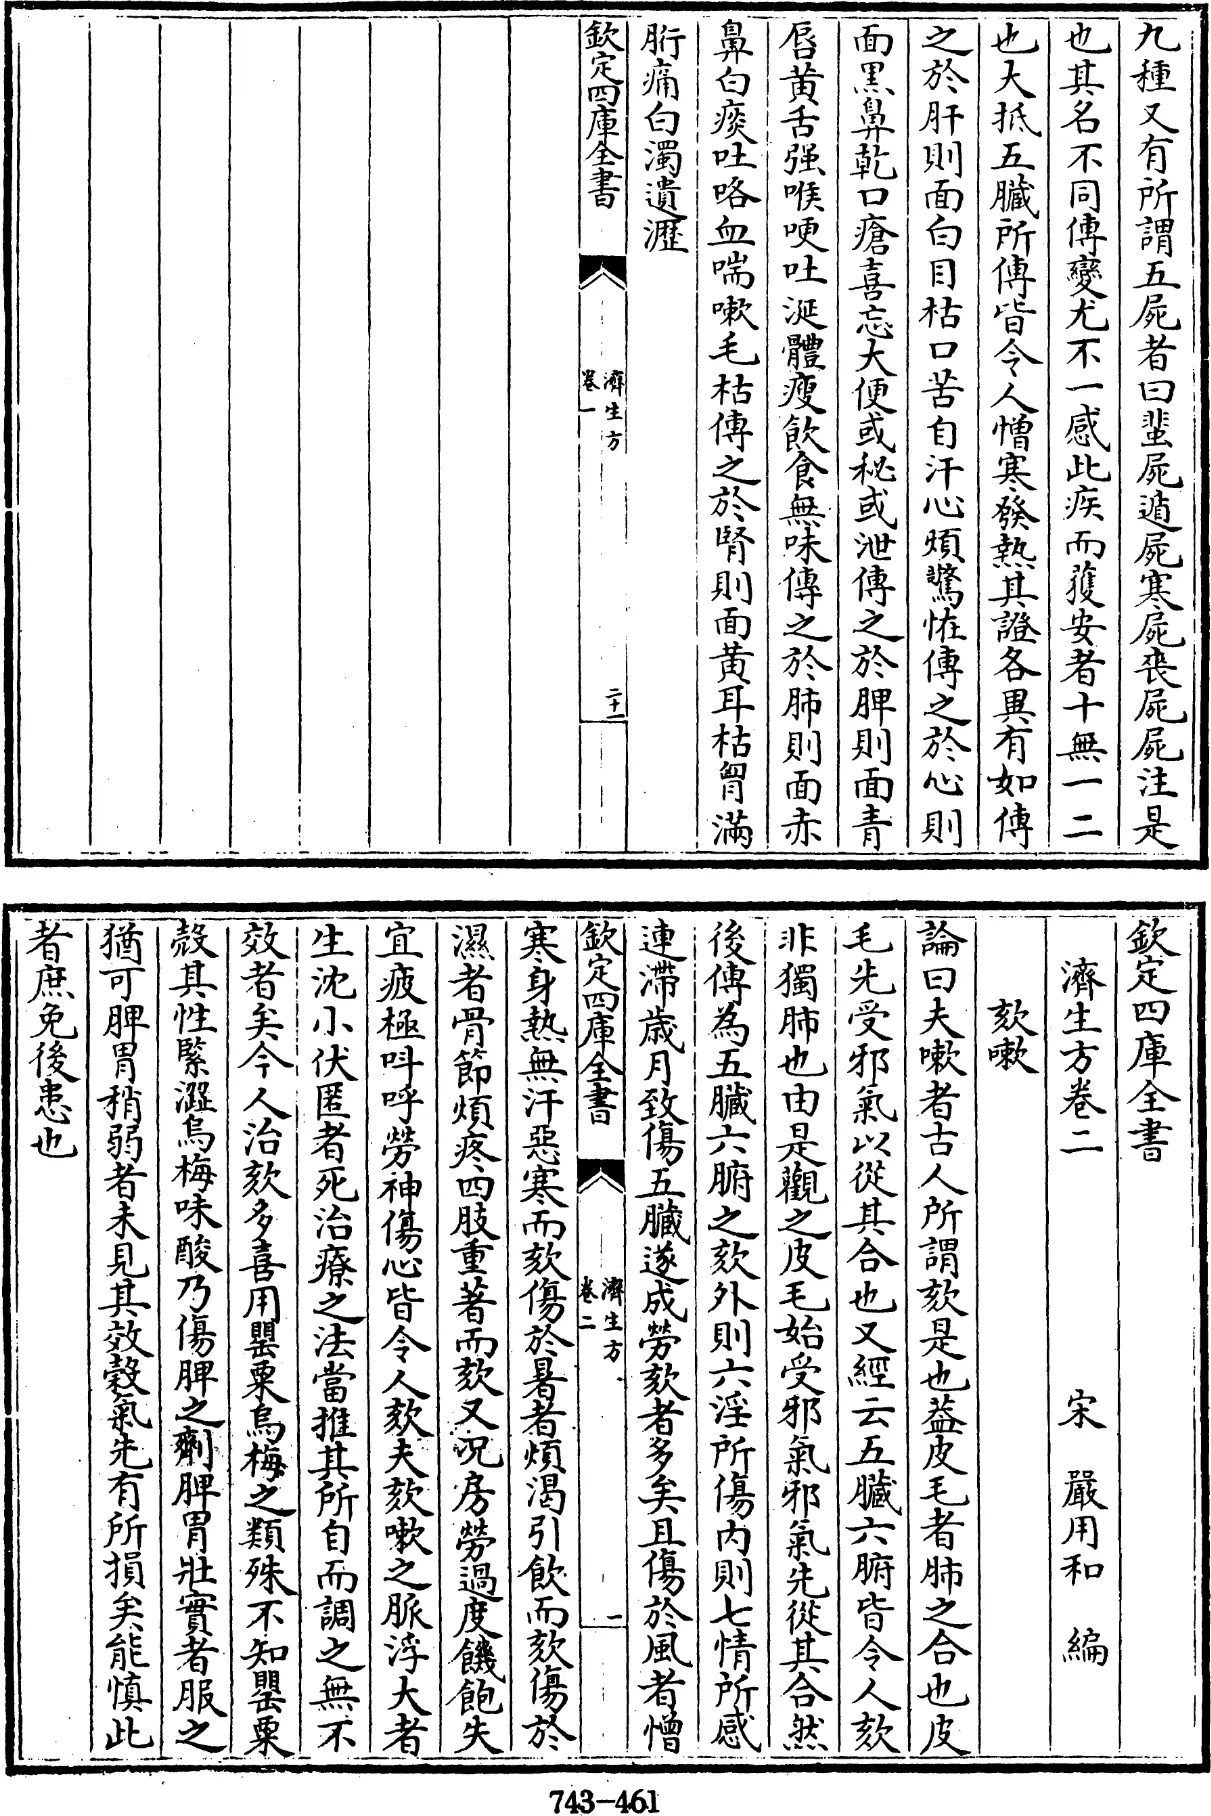 九種又有所謂五屍者曰蜚屍遁屍寒屍喪屍屍注是
也其名不同傳變尤不一感此疾而獲安者十無一二
也大抵五臟所傳皆令人憎寒發熱其證各異有如傳
之於肝則面白目枯口苦自汗心煩驚恠傳之於心則
面黑鼻乾口瘡喜忘大便或秘或泄傳之於脾則面青
唇黄舌强喉哽吐涎體瘦飲食無味傳之於肺則面赤
鼻白痰吐咯血喘嗽毛枯傳之於腎則面黄耳枯胷滿
胻痛白濁遺瀝
欽定四庫全書
濟生方
卷一
二十一
欽定四庫全書
濟生方卷二
宋 嚴用和 編
欬嗽
論曰夫嗽者古人所謂欬是也葢皮毛者肺之合也皮
毛先受邪氣以從其合也又經云五臟六腑皆令人欬
非獨肺也由是觀之皮毛始受邪氣邪氣先從其合然
後傳為五臟六腑之欬外則六淫所傷内則七情所感
連滯歳月致傷五臟遂成勞欬者多矣且傷於風者憎
欽定四庫全書
濟生方
卷二
一
寒身熱無汗惡寒而欬傷於暑者煩渴引飲而欬傷於
濕者骨節煩疼四肢重著而欬又况房勞過度饑飽失
宜疲極呌呼勞神傷心皆令人欬夫欬嗽之脈浮大者
生沈小伏匿者死治療之法當推其所自而調之無不
效者矣今人治欬多喜用罌粟烏梅之類殊不知罌粟
殼其性緊澀烏梅味酸乃傷脾之劑脾胃壯實者服之
猶可脾胃稍弱者未見其效榖氣先有所損矣能慎此
者庶免後患也
743-461